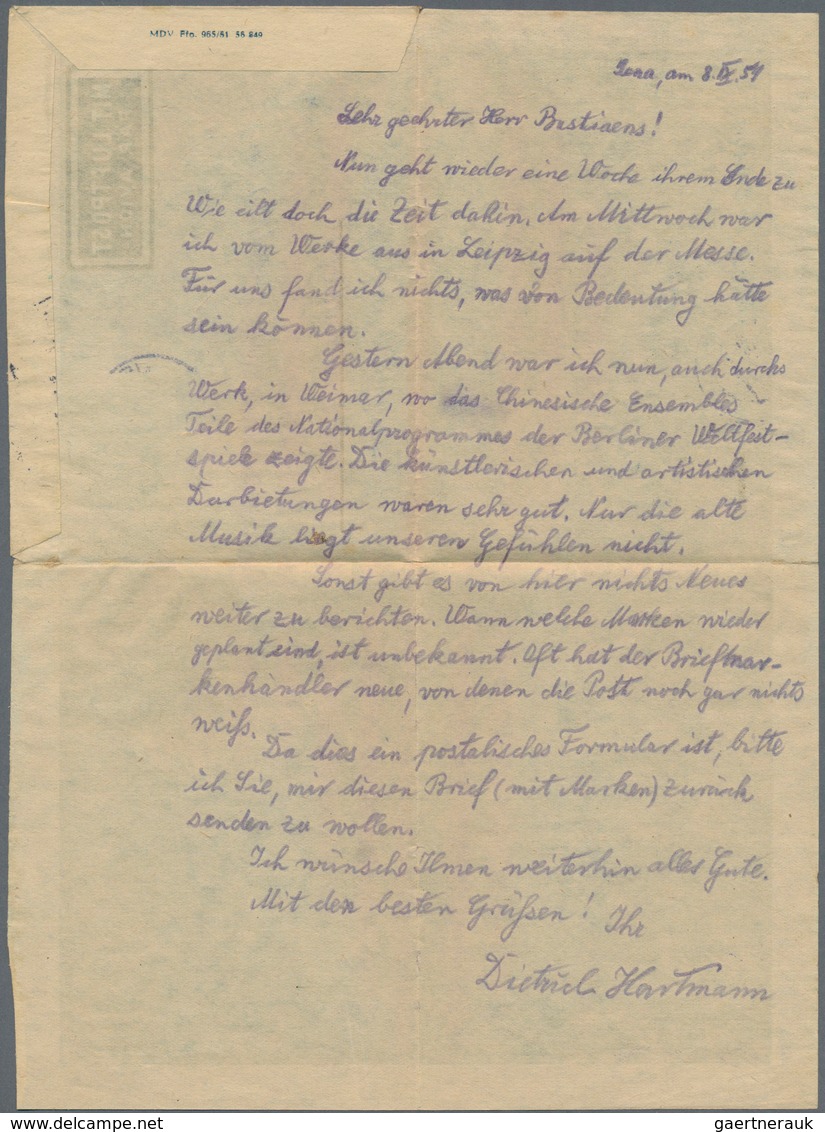 MDV Ffo. 965/51 55 849
Jena, am 8.IX.51
Sehr geehrter Herr Bastiaens!
Nun geht wieder eine Woche ihrem Ende zu
Wie eilt doch die Zeit dahin. Am Mittwoch war
ich vom Werke aus in Leipzig auf der Messe.
Für uns fand ich nichts, was von Bedeutung hätte
sein können.
Gestern Abend war ich nun, auch durchs
Werk, in Weimar, wo das Chinesische Ensembles
Teile des Nationalprogrammes der Berliner Weltfest-
spiele zeigte. Die künstlerischen und artistischen
Darbietungen waren sehr gut. Nur die alte
Musik liegt unseren Gefühlen nicht.
Sonst gibt es von hier nichts Neues
weiter zu berichten. Wann welche Marken wieder
geplant sind, ist unbekannt. Oft hat der Briefmar-
kenhändler neue, von denen die Post noch gar nichts
weiß.
Da dies ein postalisches Formular ist, bitte
ich Sie, mir diesen Brief (mit Marken) zurück
senden zu wollen.
Ich wünsche Ihnen weiterhin alles Gute.
Mit den besten Grüßen!
Ihr
Dietrich Hartmann
MIT LUFTPOST
PAR AVION
gaertnerauk